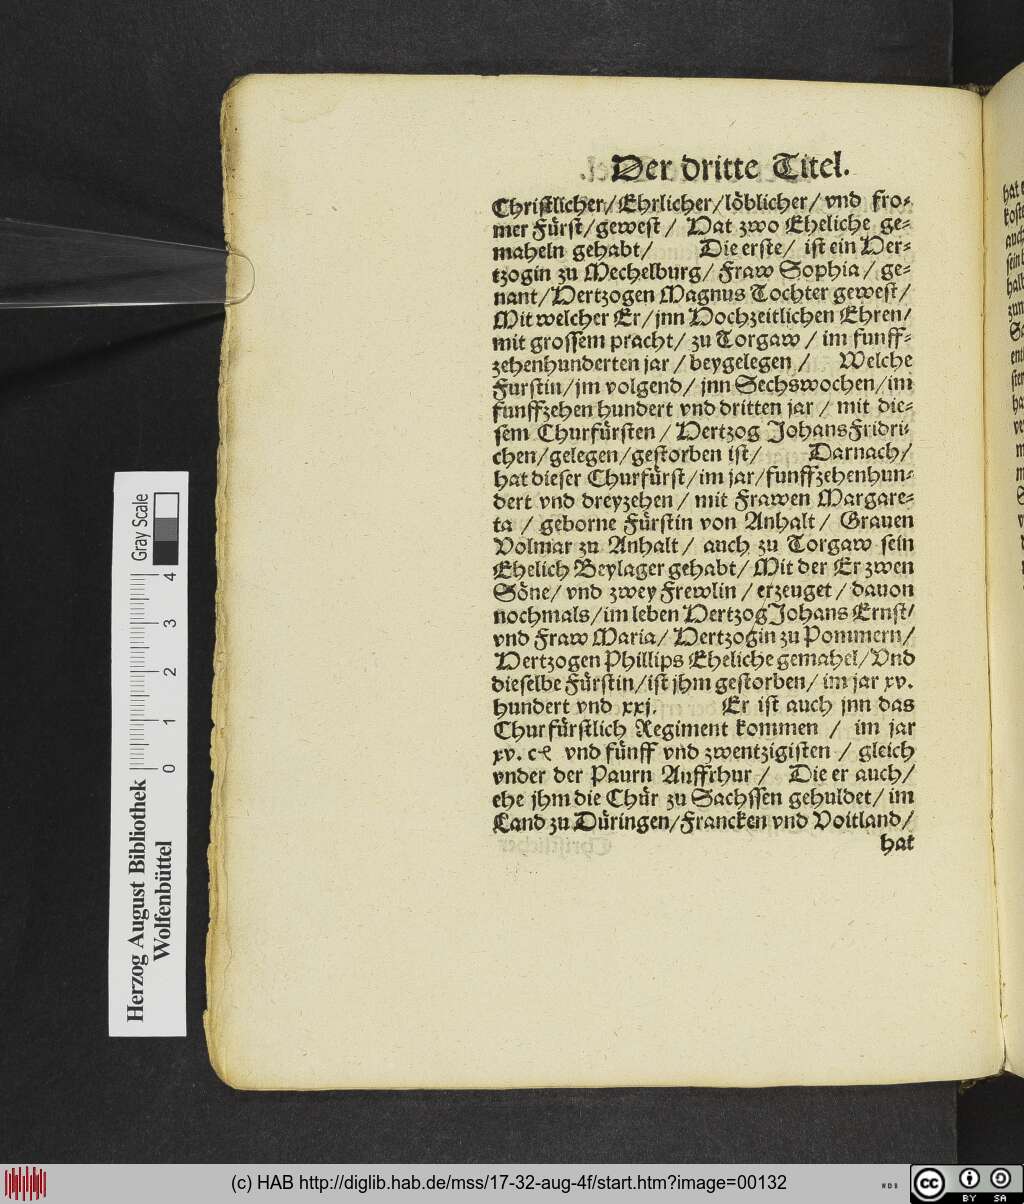 Der dritte Titel.
Christlicher/ Ehrlicher/ löblicher/ vnd fro-
mer Fürst/ gewest / Hat zwo Eheliche ge-
maheln gehabt/ Die erste/ ist ein Her-
tzogin zu Mechelburg/ Fraw Sophia / ge-
nant/ Hertzogen Magnus Tochter gewest/
Mit welcher Er/ jnn Hochzeitlichen Ehren/
mit grossem pracht/ zu Torgaw / im funff-
zehenhunderten jar / beygelegen / Welche
Furstin/ jm volgend/ jnn Sechswochen/ im
funffzehen hundert vnd dritten jar / mit die-
sem Churfürsten / Hertzog Johans Fridri-
chen/ gelegen/ gestorben ist/ Darnach/
hat dieser Churfürst/ im jar/ funffzehenhun-
dert vnd dreyzehen / mit Frawen Margare-
ta / geborne Fürstin von Anhalt / Grauen
Volmar zu Anhalt / auch zu Torgaw sein
Ehelich Beylager gehabt/ Mit der Er zwen
Söne/ vnd zwey Frewlin / erzeuget / dauon
nochmals/ im leben Hertzog Johans Ernst/
vnd Fraw Maria/ Hertzogin zu Pommern/
Hertzogen Phillips Eheliche gemahel/ Vnd
dieselbe Fürstin/ ist jhm gestorben/ im jar xv.
hundert vnd xxj. Er ist auch jnn das
Churfürstlich Regiment kommen / im jar
xv. cꝭ vnd fünff vnd zwentzigisten / gleich
vnder der Paurn Auffrhur / Die er auch/
ehe jhm die Chür zu Sachssen gehuldet/ im
Land zu Düringen/ Francken vnd Voitland/
hat
Herzog August Bibliothek
Wolfenbüttel
Gray Scale
0 1 2 3 4
(c) HAB http://diglib.hab.de/mss/17-32-aug-4f/start.htm?image=00132
WDB
cc BY SA